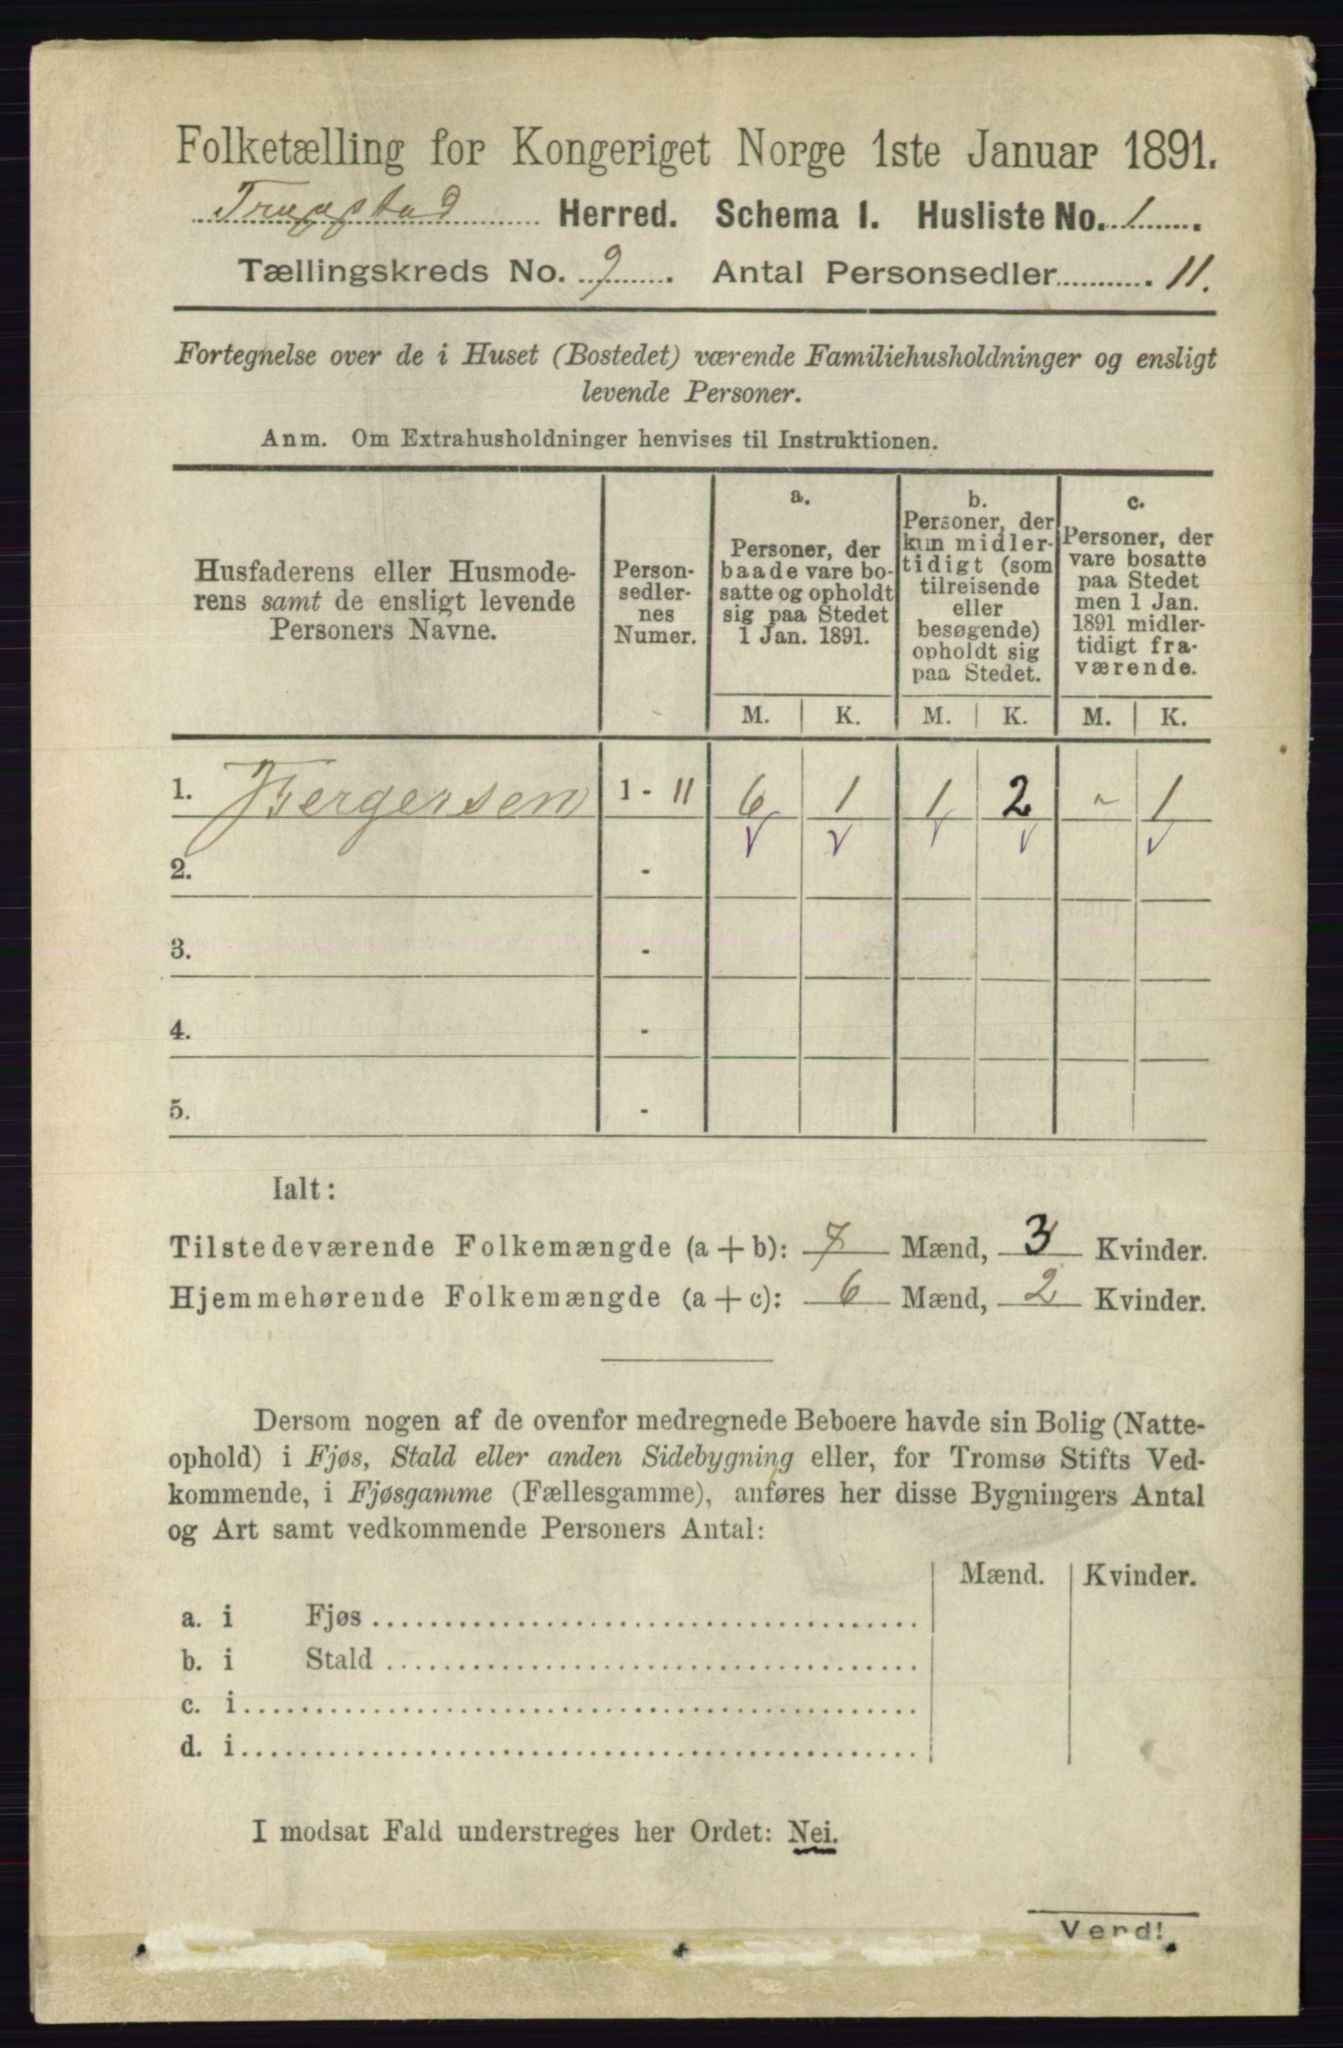 Folketælling for Kongeriget Norge 1ste Januar 1891.
Trøgstad Herred. Schema 1. Husliste No. 1.
Tællingskreds No. 9. Antal Personsedler 11.
Fortegnelse over de i Huset (Bostedet) værende Familiehusholdninger og ensligt
levende Personer.
Anm. Om Extrahusholdninger henvises til Instruktionen.
Husfaderens eller Husmode-
rens samt de ensligt levende
Personers Navne.
Person-
sedler-
nes
Numer.
a.
Personer, der
baade vare bo-
satte og opholdt
sig paa Stedet
1 Jan. 1891.
b.
Personer, der
kun midler-
tidigt (som
tilreisende
eller
besøgende)
opholdt sig
paa Stedet.
c.
Personer, der
vare bosatte
paa Stedet
men 1 Jan.
1891 midler-
tidigt fra-
værende.
M. K. M. K. M. K.
1. Bergersen 1 - 11 6 1 1 2 - 1
2. -
3. -
4. -
5. -
Ialt:
Tilstedeværende Folkemængde (a + b): 7 Mænd, 3 Kvinder.
Hjemmehørende Folkemængde (a + c): 6 Mænd, 2 Kvinder.
Dersom nogen af de ovenfor medregnede Beboere havde sin Bolig (Natte-
ophold) i Fjøs, Stald eller anden Sidebygning eller, for Tromsø Stifts Ved-
kommende, i Fjøsgamme (Fællesgamme), anføres her disse Bygningers Antal
og Art samt vedkommende Personers Antal:
Mænd. Kvinder.
a. i Fjøs
b. i Stald
c. i
d. i
I modsat Fald understreges her Ordet: Nei.
Vend!